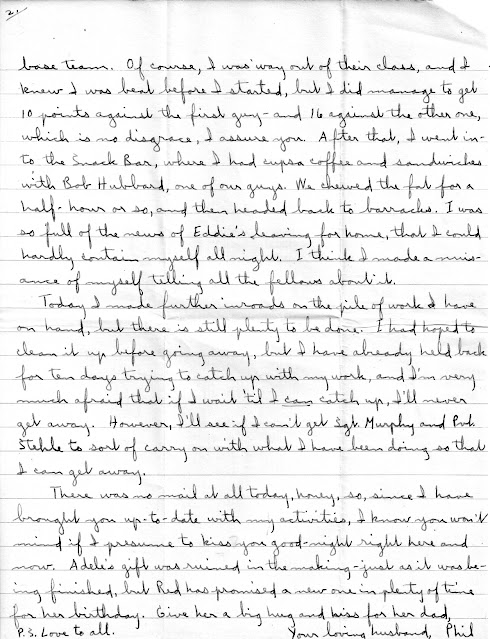 2.
base team. Of course, I was way out of their class, and I
knew I was beat before I started, but I did manage to get
10 points against the first guy - and 16 against the other one,
which is no disgrace, I assure you. After that, I went in-
to the Snack Bar, where I had cupsa coffee and sandwiches
with Bob Hubbard, one of our guys. We chewed the fat for a
half-hour or so, and then headed back to barracks. I was
so full of the news of Eddie's leaving for home, that I could
hardly contain myself all night. I think I made a nuis-
ance of myself telling all the fellows about it.
Today I made further inroads on the pile of work I have
on hand, but there is still plenty to be done. I had hoped to
clean it up before going away, but I have already held back
for ten days trying to catch up with my work, and I'm very
much afraid that if I wait 'til I can catch up, I'll never
get away. However, I'll see if I can't get Sgt. Murphy and Pvt.
Stehle to sort of carry on with what I have been doing so that
I can get away.
There was no mail at all today, honey, so, since I have
brought you up-to-date with my activities, I know you won't
mind if I presume to kiss you good-night right here and
now. Adele's gift was ruined in the making - just as it was be-
ing finished, but Red has promised a new one in plenty of time
for her birthday. Give her a big hug and kiss for her dad,
P.S. Love to all. Your loving husband, Phil